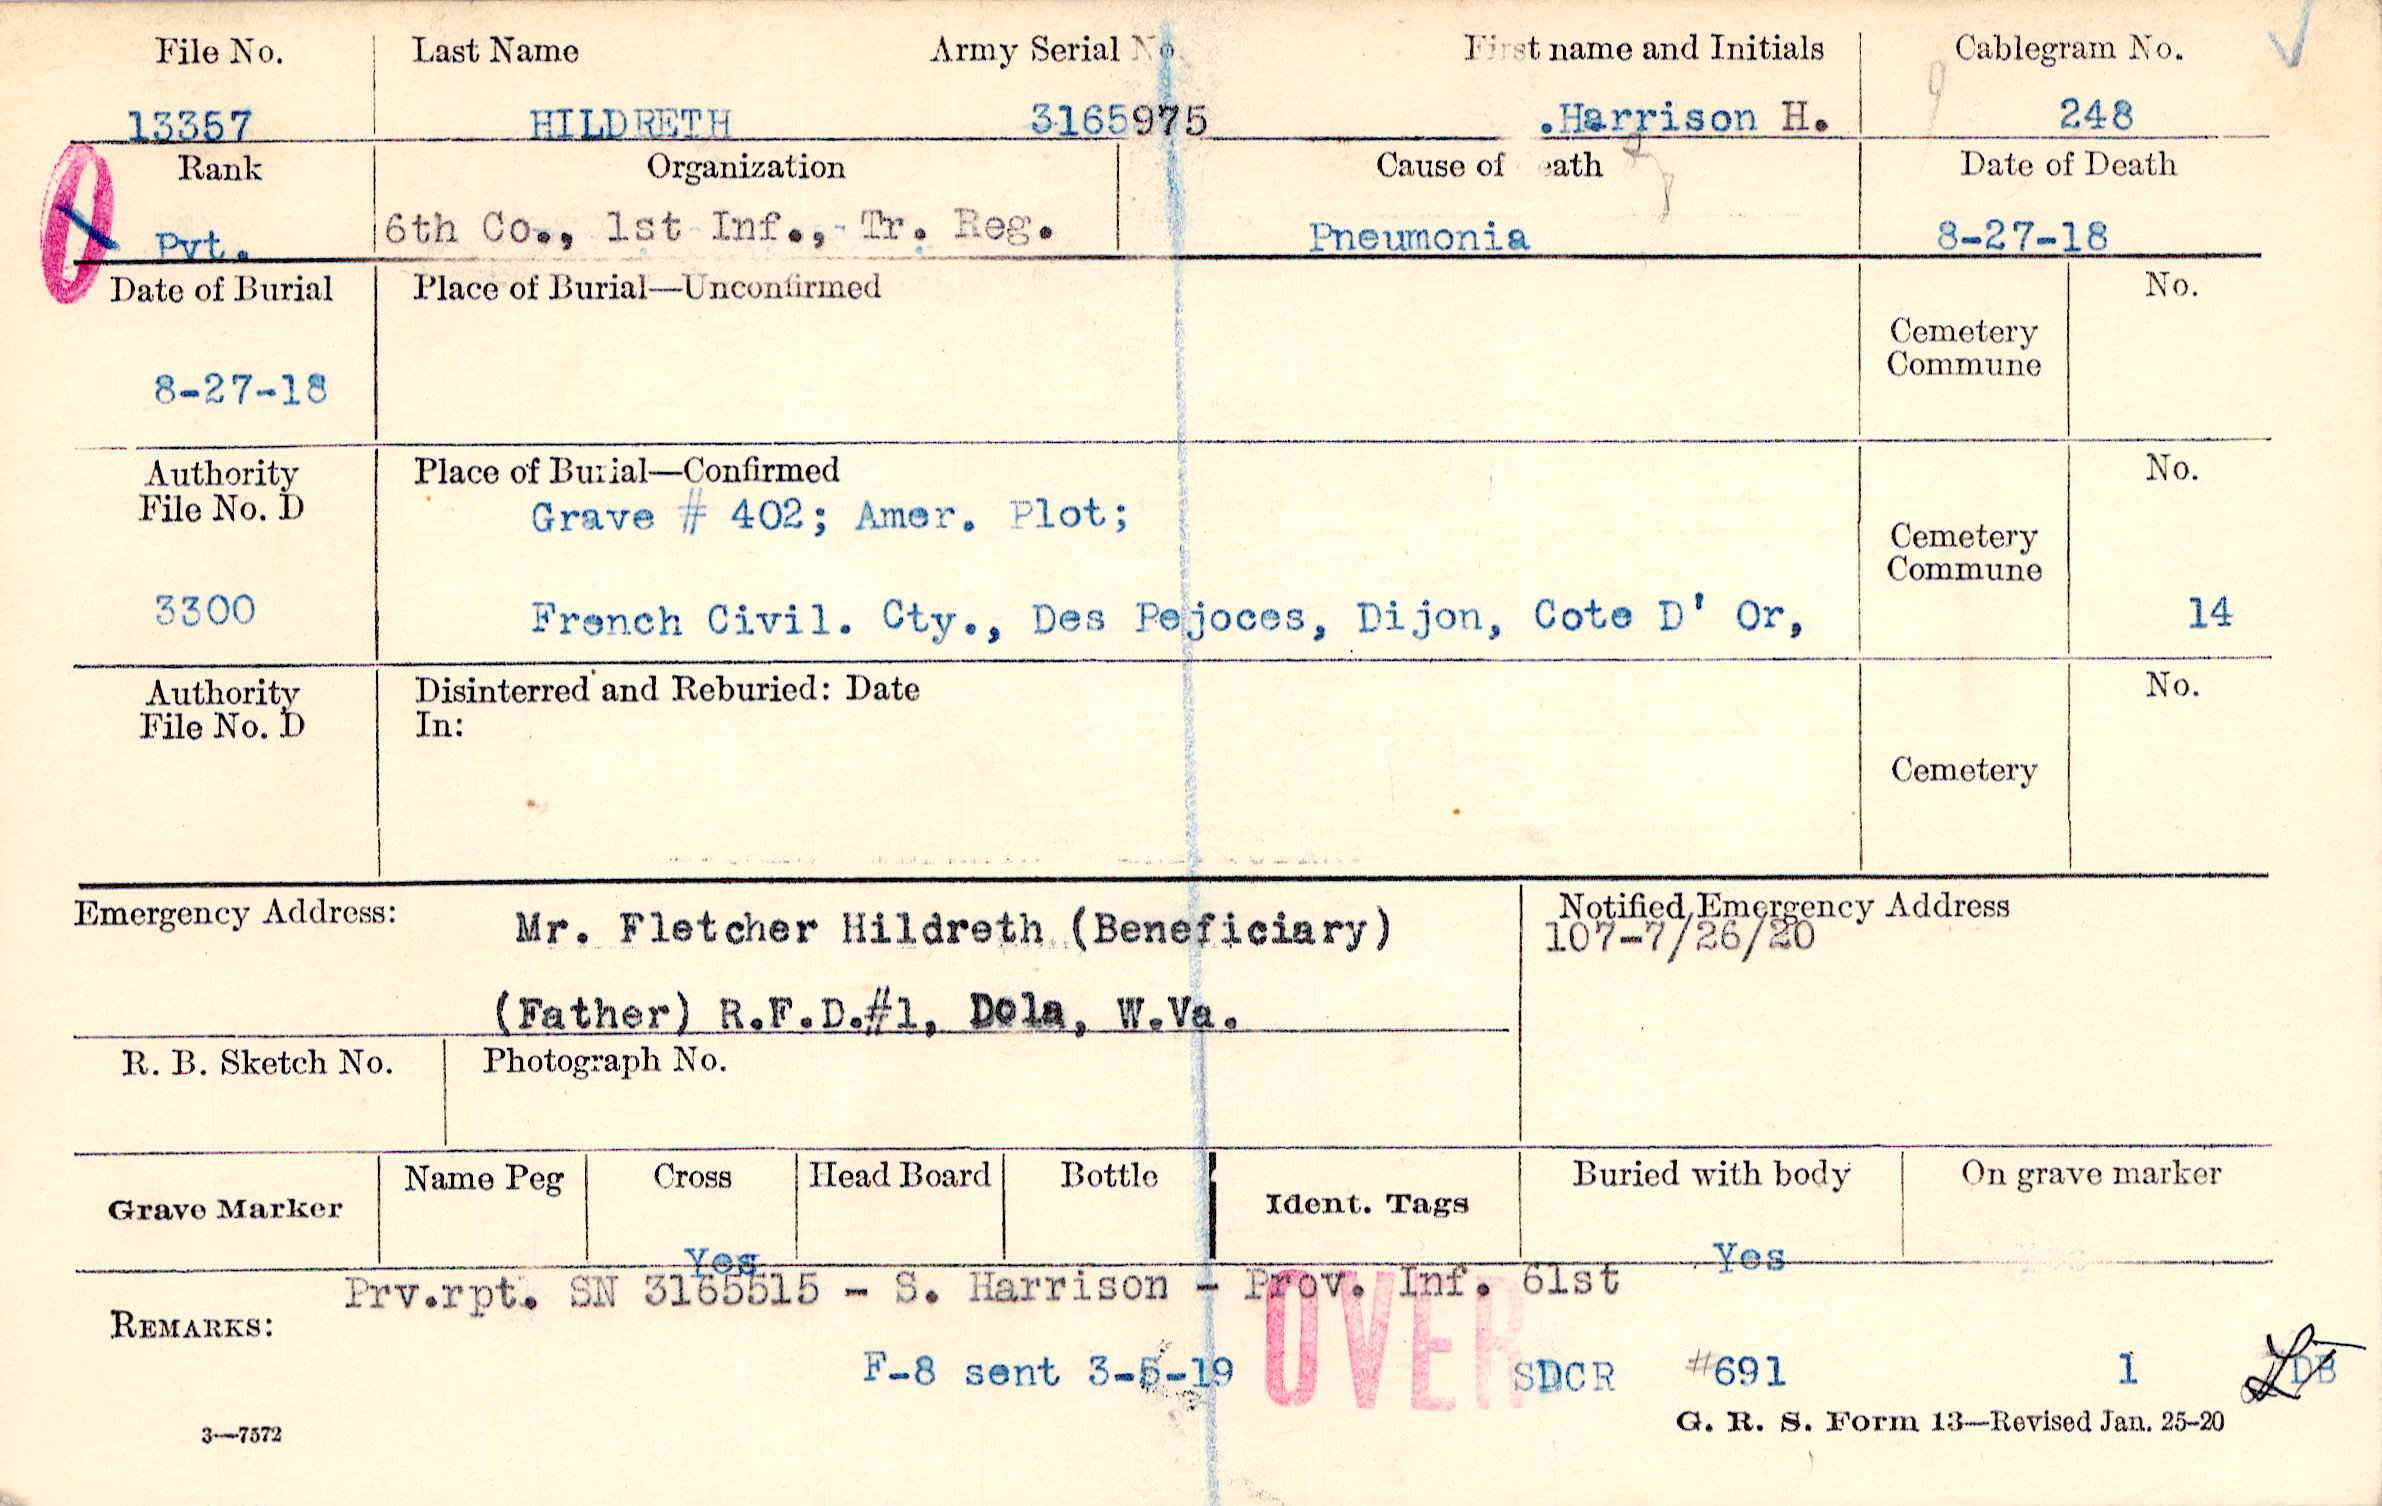 File No. Last Name Army Serial No. First name and Initials Cablegram No.
13357 HILDRETH 3165975 .Harrison H. 248
Rank Organization Cause of Death Date of Death
Pvt. 6th Co., 1st Inf., Tr. Reg. Pneumonia 8-27-18
Date of Burial Place of Burial—Unconfirmed No.
Cemetery
Commune
8-27-18
Authority Place of Burial—Confirmed No.
File No. D Grave # 402; Amer. Plot;
Cemetery
Commune
3300 French Civil. Cty., Des Pejoces, Dijon, Cote D' Or, 14
Authority Disinterred and Reburied: Date No.
File No. D In:
Cemetery
Emergency Address: Mr. Fletcher Hildreth (Beneficiary) Notified Emergency Address
107-7/26/20
(Father) R.F.D.#1, Dola, W.Va.
R. B. Sketch No. Photograph No.
Grave Marker Name Peg Cross Head Board Bottle Ident. Tags Buried with body On grave marker
Yes Yes
Prv.rpt. SN 3165515 - S. Harrison - Prov. Inf. 61st
REMARKS:
OVER
F-8 sent 3-5-19 SDCR #691 1 DB
3—7572 G. R. S. Form 13—Revised Jan. 25-20